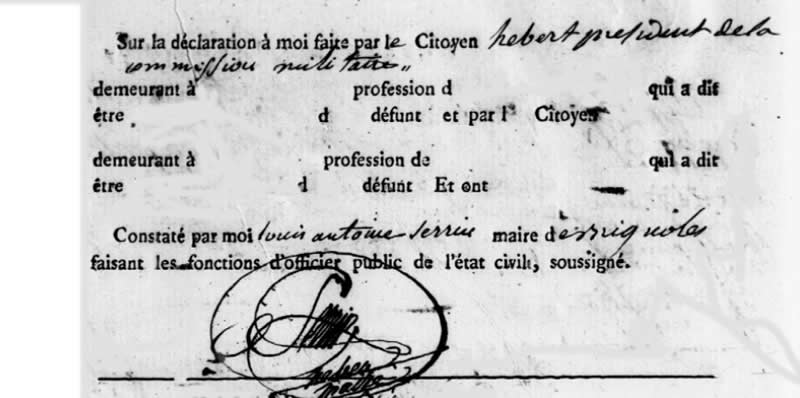 Sur la déclaration à moi faite par le Citoyen hebert president de la
commission militaire
demeurant à profession d qui a dit
être d défunt et par l Citoyen
demeurant à profession de qui a dit
être d défunt Et ont
Constaté par moi louis antoine serrin maire de
faisant les fonctions d'officier public de l'état civil, soussigné.